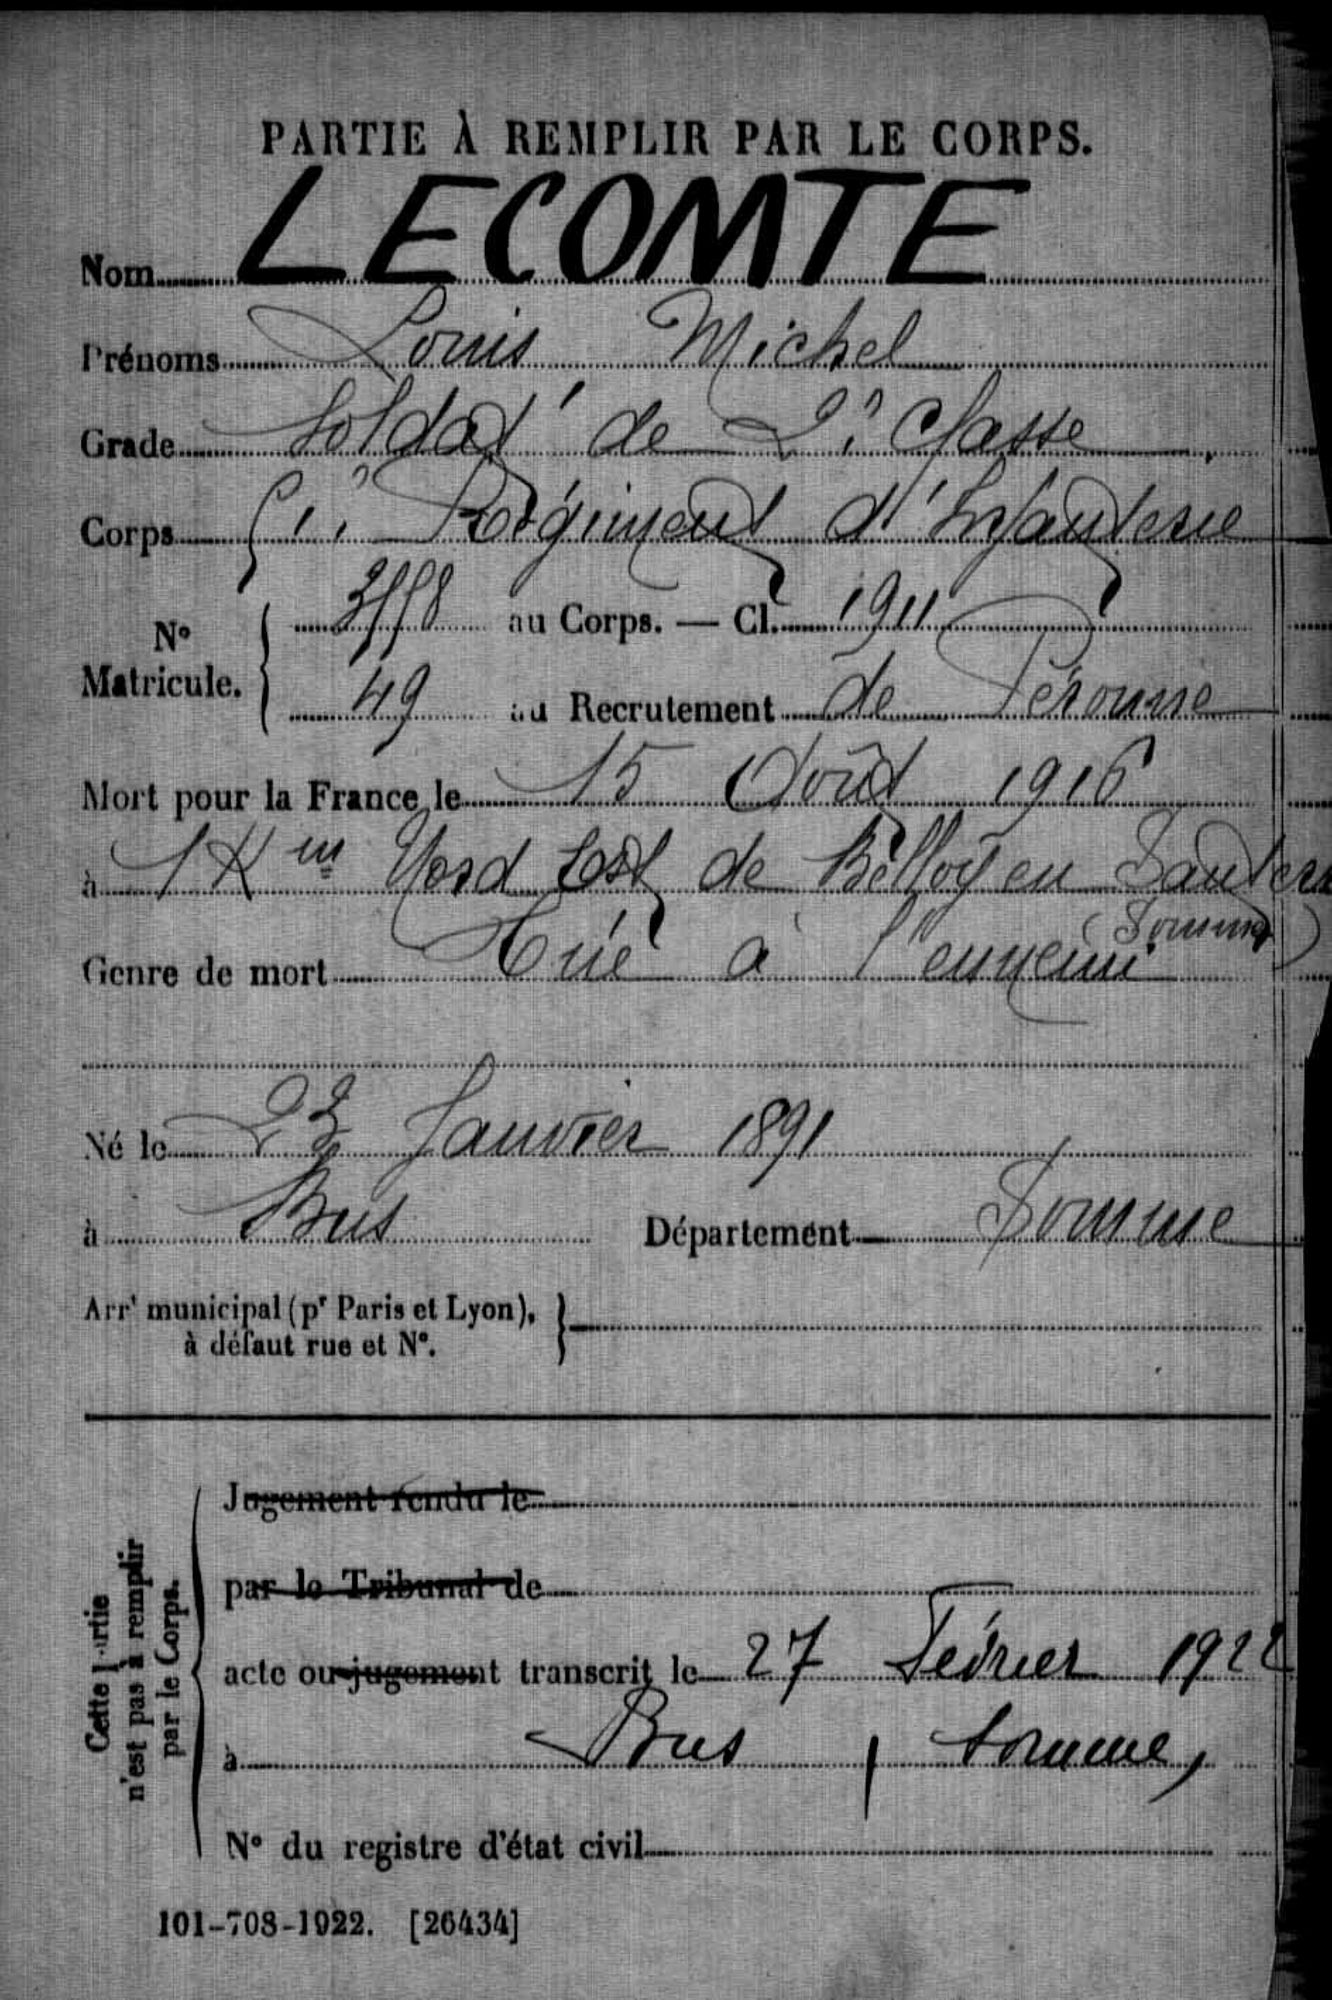 PARTIE À REMPLIR PAR LE CORPS.
Nom LECOMTE
Prénoms Louis Michel
Grade Soldat de 2e Classe
Corps Régiment d'Infanterie
N° Matricule. au Corps. — Cl. 1911
49 au Recrutement de Péronne
Mort pour la France le 15 Août 1916
à 1 Km Nord Est de Belloy en Santerr
(Somme)
Genre de mort Tué à l'ennemi
Né le 23 Janvier 1891
à Bus Département Somme
Arrt municipal (pr Paris et Lyon),
à défaut rue et N°.
Cette partie
n'est pas à remplir
par le Corps.
Jugement rendu le
par le Tribunal de
acte ou jugement transcrit le 27 Février 1922
à Bus, Somme,
N° du registre d'état civil
101-708-1922. [26434]